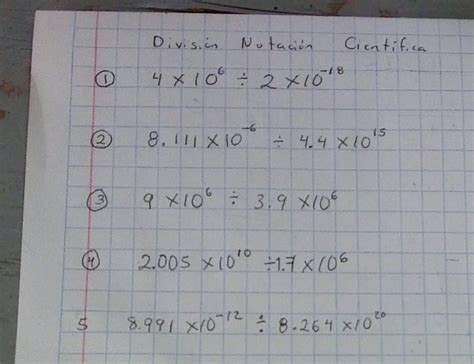 División Notación Científica
① 4 × 10⁶ ÷ 2 × 10⁻¹⁸
② 8.111 × 10⁻⁶ ÷ 4.4 × 10¹⁵
③ 9 × 10⁶ ÷ 3.9 × 10⁶
④ 2.005 × 10¹⁰ ÷ 1.7 × 10⁶
5 8.991 × 10⁻¹² ÷ 8.264 × 10²⁰